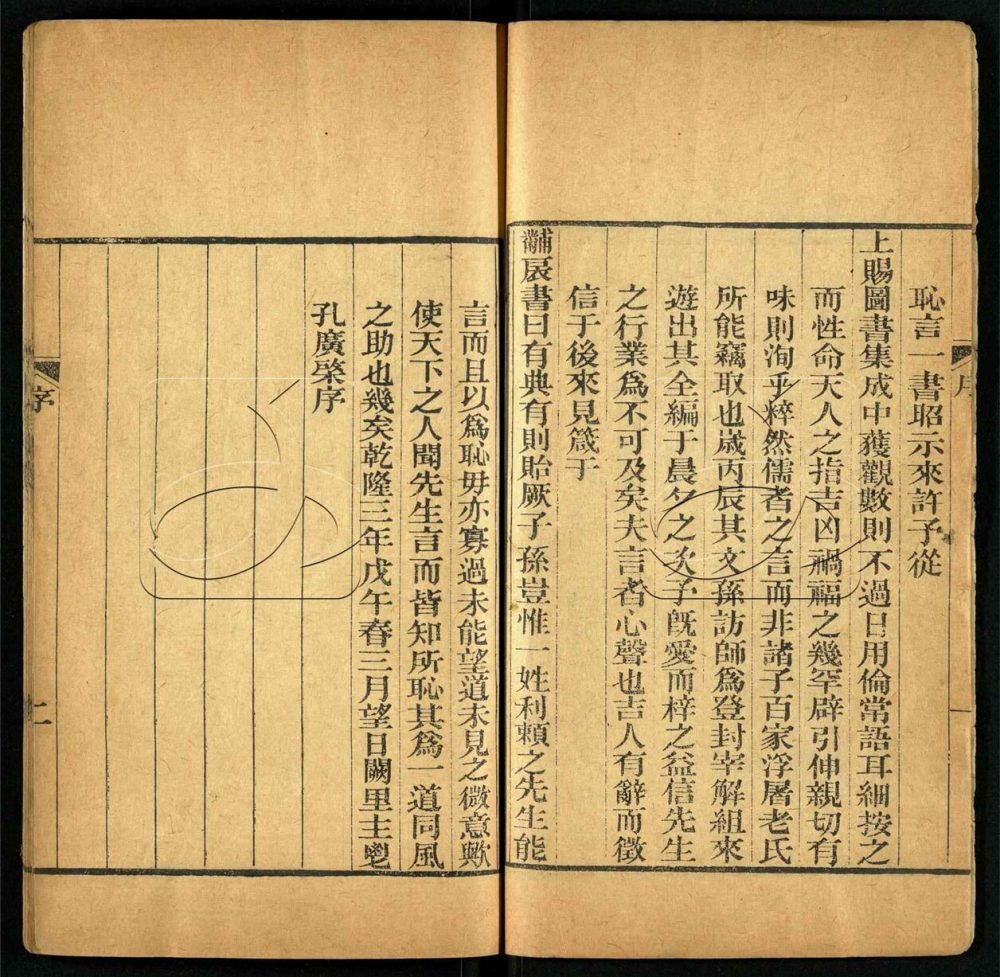 序
一
恥言一書昭示來許予從
上賜圖書集成中獲觀數則不過日用倫常語耳細按之
而性命天人之指吉凶禍福之幾罕辟引伸親切有
味則洵乎粹然儒者之言而非諸子百家浮屠老氏
所能竊取也歲丙辰其文孫訪師爲登封宰解組來
遊出其全編于晨夕之次予既愛而梓之益信先生
之行業爲不可及矣夫言者心聲也吉人有辭而徵
信于後來見箴于
黼扆書曰有典有則貽厥子孫豈惟一姓利賴之先生能
言而且以爲恥毋亦寡過未能望道未見之微意歟
使天下之人聞先生言而皆知所恥其爲一道同風
之助也幾矣乾隆三年戊午春三月望日闕里主鬯
孔廣棨序
序
二